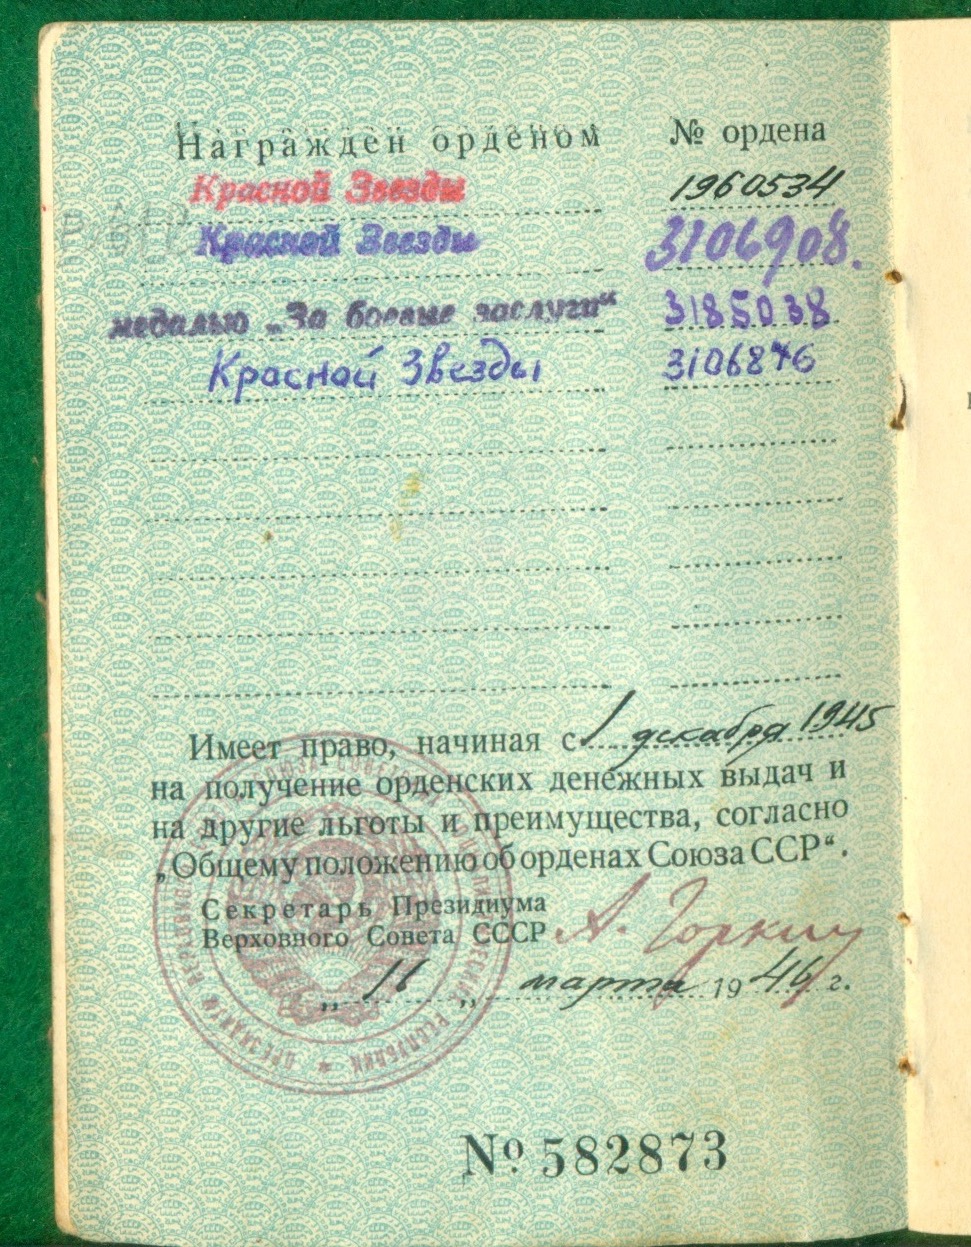 Награжден орденом № ордена
Красной Звезды 1960534
Красной Звезды 3106908.
медалью „За боевые заслуги“ 3185038
Красной Звезды 3106876
Имеет право, начиная с 1 декабря 1945
на получение орденских денежных выдач и
на другие льготы и преимущества, согласно
„Общему положению об орденах Союза ССР“.
Секретарь Президиума
Верховного Совета СССР А. Горкин
„ 11 „ марта 1946 г.
№ 582873